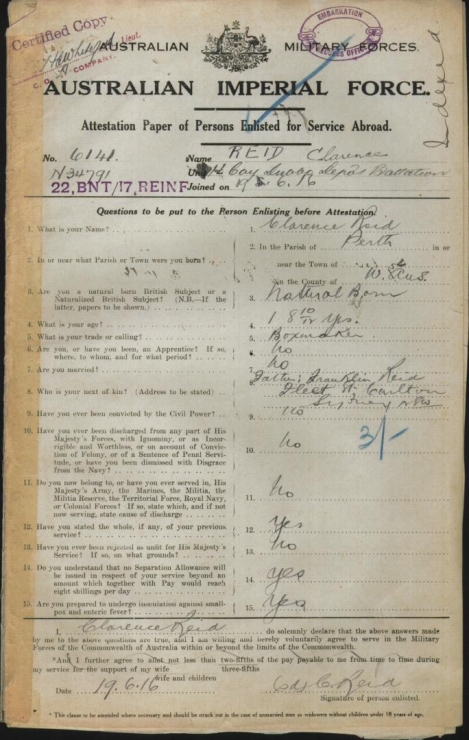 Certified Copy
Lieut.
C. O. COMPANY.
EMBARKATION
Indexed
AUSTRALIAN MILITARY FORCES.
AUSTRALIAN IMPERIAL FORCE.
Attestation Paper of Persons Enlisted for Service Abroad.
No. 6141. Name REID Clarence
N34791 Unit Coy Depôt Battalion
22,BNT/17,REINF Joined on 6.16
Questions to be put to the Person Enlisting before Attestation.
1. What is your Name? 1. Clarence Reid
2. In or near what Parish or Town were you born? 2. In the Parish of Perth in or
near the Town of
in the County of W. Aus.
3. Are you a natural born British Subject or a 3. Natural Born
Naturalized British Subject? (N.B.—If the
latter, papers to be shown.)
4. What is your age? 4. 18 10/12 yrs.
5. What is your trade or calling? 5. Boxmaker
6. Are you, or have you been, an Apprentice? If so, 6. no
where, to whom, and for what period?
7. Are you married? 7. no
8. Who is your next of kin? (Address to be stated) 8. Father: Franklin Reid
Fleet St Carlton
Sydney NSW
9. Have you ever been convicted by the Civil Power? 9. no
10. Have you ever been discharged from any part of His 10. no 3/-
Majesty's Forces, with Ignominy, or as Incor-
rigible and Worthless, or on account of Convic-
tion of Felony, or of a Sentence of Penal Servi-
tude, or have you been dismissed with Disgrace
from the Navy?
11. Do you now belong to, or have you ever served in, His 11. no
Majesty's Army, the Marines, the Militia, the
Militia Reserve, the Territorial Force, Royal Navy,
or Colonial Forces? If so, state which, and if not
now serving, state cause of discharge
12. Have you stated the whole, if any, of your previous 12. yes
service?
13. Have you ever been rejected as unfit for His Majesty's 13. no
Service? If so, on what grounds?
14. Do you understand that no Separation Allowance will 14. yes
be issued in respect of your service beyond an
amount which together with Pay would reach
eight shillings per day
15. Are you prepared to undergo inoculation against small- 15. yes
pox and enteric fever?
I, Clarence Reid do solemnly declare that the above answers made
by me to the above questions are true, and I am willing and hereby voluntarily agree to serve in the Military
Forces of the Commonwealth of Australia within or beyond the limits of the Commonwealth.
*And I further agree to allot not less than two-fifths of the pay payable to me from time to time during
three-fifths
my service for the support of my wife
wife and children
Date 19.6.16 C. Reid
Signature of person enlisted.
* This clause to be amended where necessary and should be struck out in the case of unmarried men or widowers without children under 18 years of age.